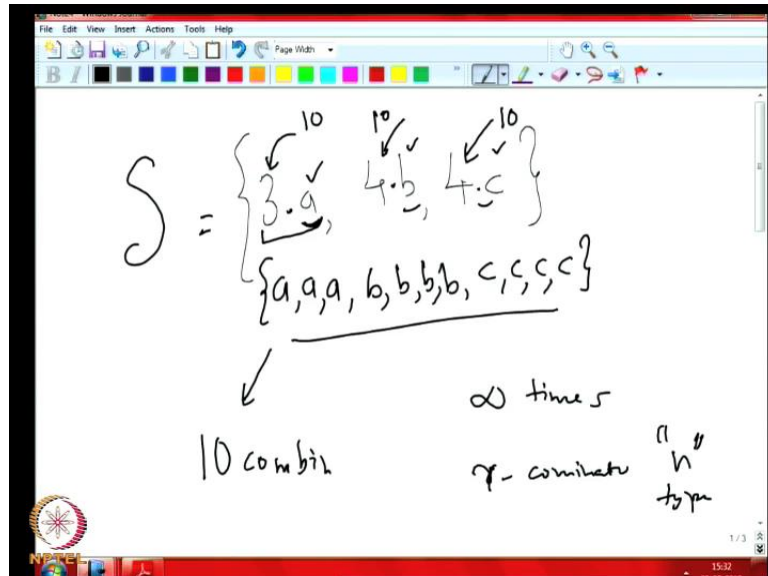 File Edit View Insert Actions Tools Help
Page Width
B I
10 10 10
S = { 3·a, 4·b, 4·c }
{a,a,a, b,b,b,b, c,c,c,c}
∞ times
10 combin
r- cominato "n"
type
1/3
NPTEL
15:32